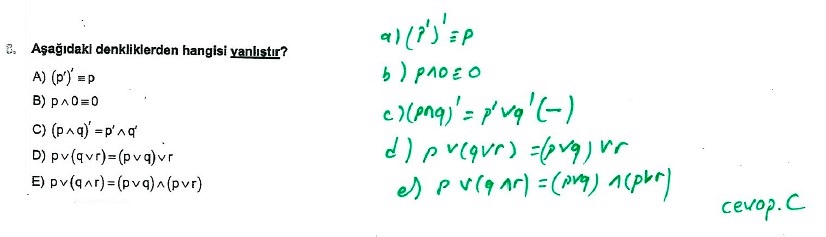 2. Aşağıdaki denkliklerden hangisi yanlıştır?
A) (p')' ≡ p
B) p∧0≡0
C) (p∧q)' =p'∧q'
D) p∨(q∨r)=(p∨q)∨r
E) p∨(q∧r)=(p∨q)∧(p∨r)
a) (p')' ≡ p
b) p∧0 ≡ 0
c) (p∧q)' = p'∨q' (-)
d) p ∨(q∨r) =(p∨q) ∨r
e) p ∨(q ∧r) =(p∨q) ∧(p∨r)
cevap. C